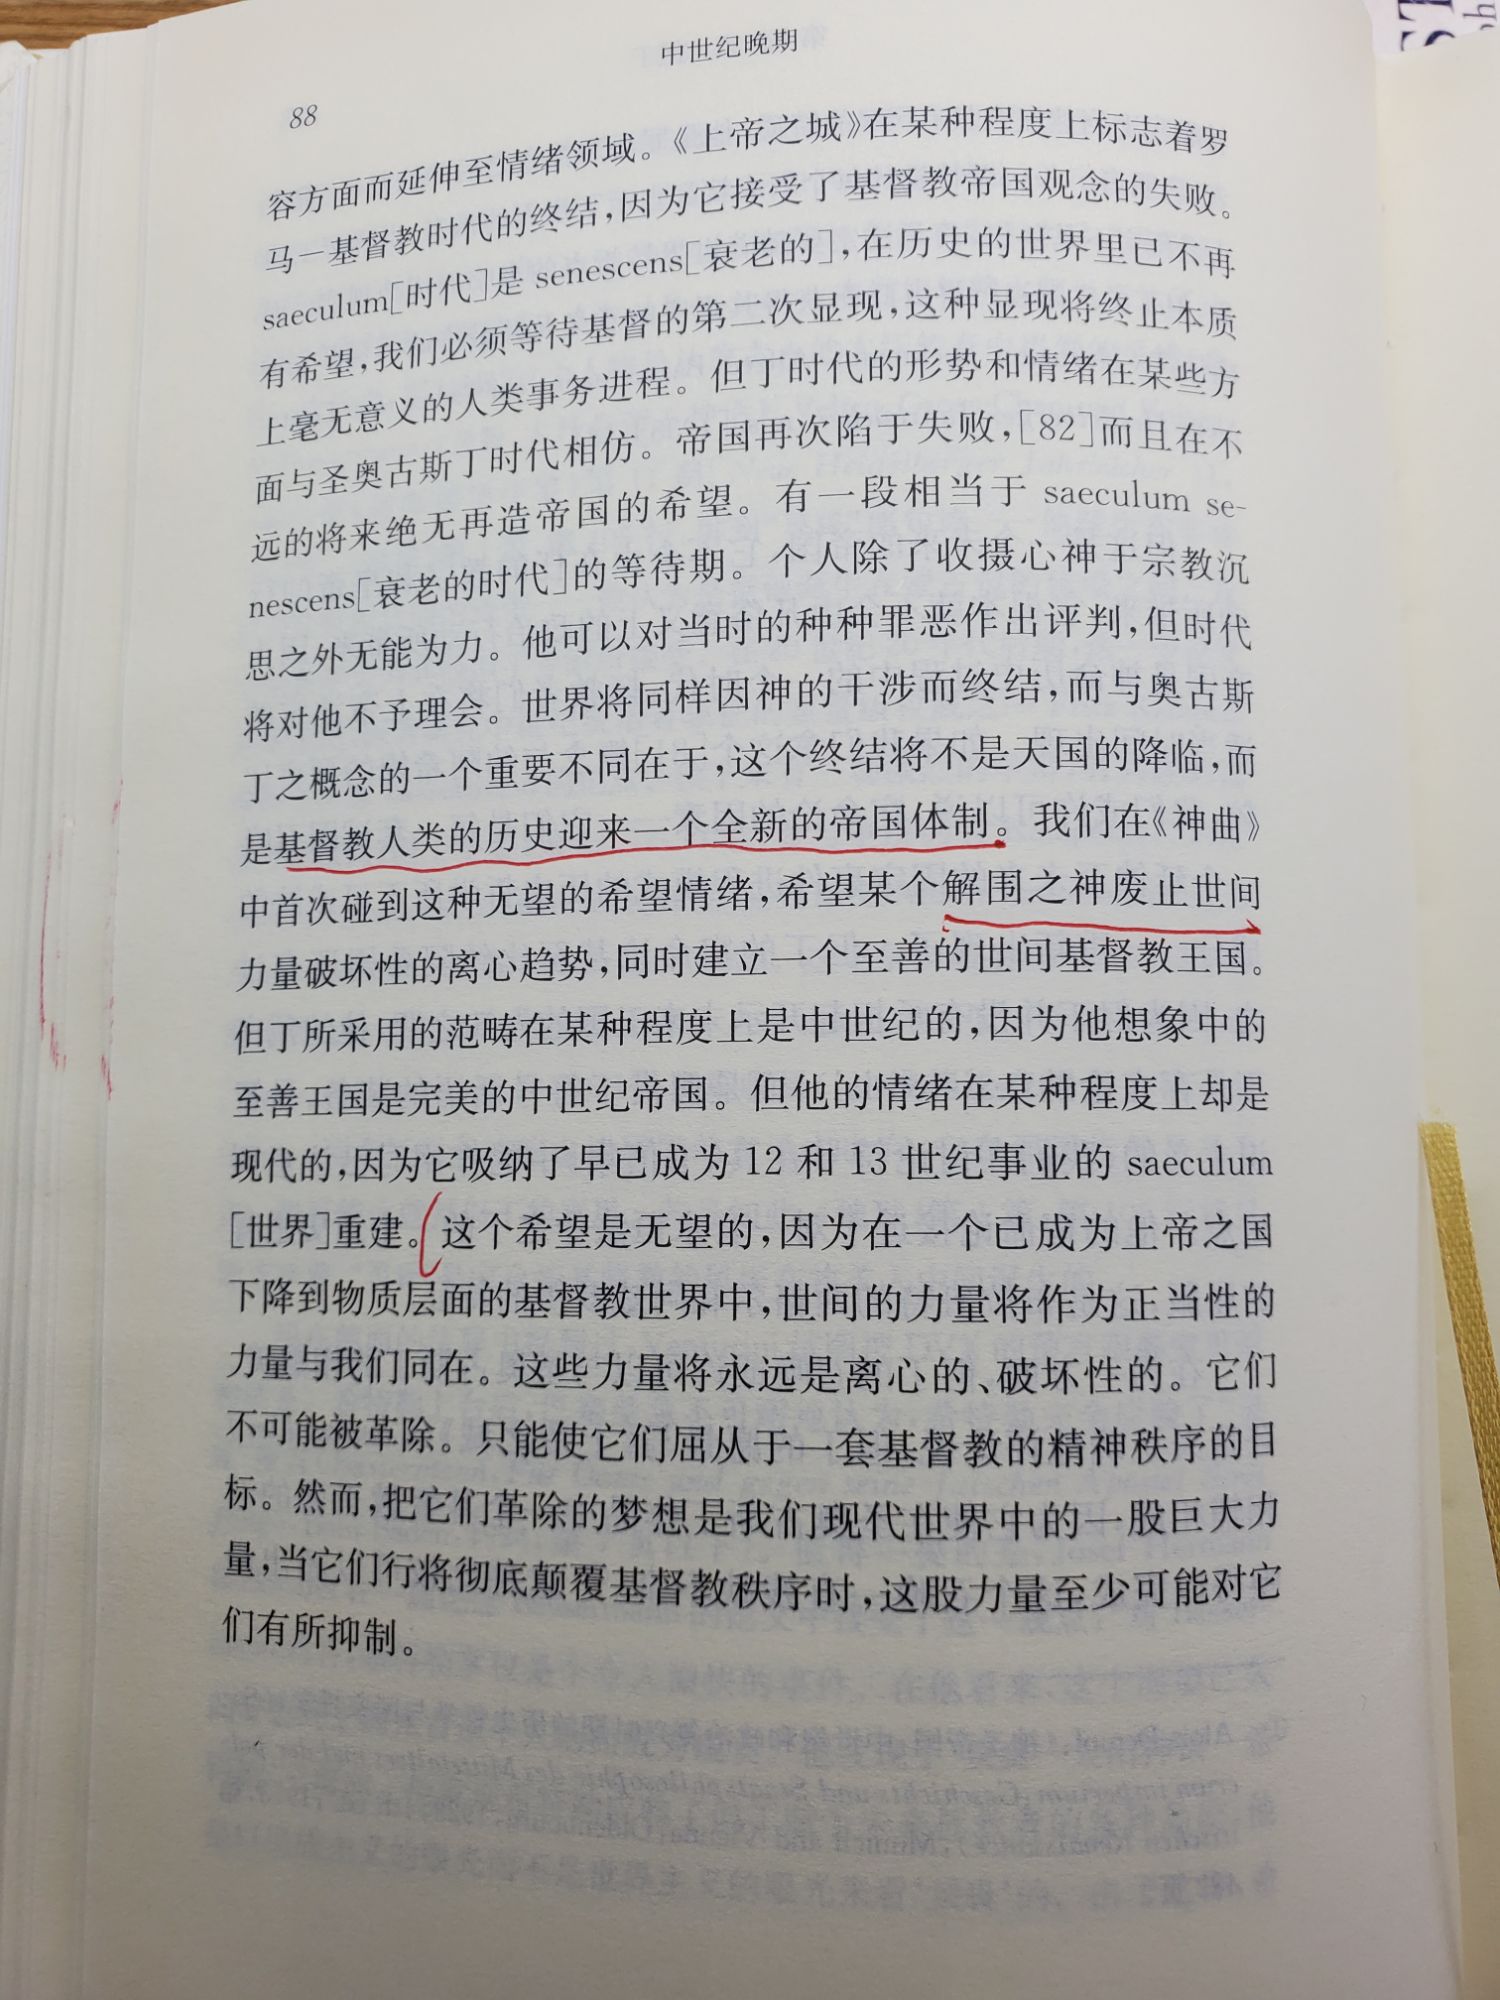 中世纪晚期
88
容方面而延伸至情绪领域。《上帝之城》在某种程度上标志着罗
马－基督教时代的终结，因为它接受了基督教帝国观念的失败。
saeculum[时代]是 senescens[衰老的]，在历史的世界里已不再
有希望，我们必须等待基督的第二次显现，这种显现将终止本质
上毫无意义的人类事务进程。但丁时代的形势和情绪在某些方
面与圣奥古斯丁时代相仿。帝国再次陷于失败，[82]而且在不
远的将来绝无再造帝国的希望。有一段相当于 saeculum se-
nescens[衰老的时代]的等待期。个人除了收摄心神于宗教沉
思之外无能为力。他可以对当时的种种罪恶作出评判，但时代
将对他不予理会。世界将同样因神的干涉而终结，而与奥古斯
丁之概念的一个重要不同在于，这个终结将不是天国的降临，而
是基督教人类的历史迎来一个全新的帝国体制。我们在《神曲》
中首次碰到这种无望的希望情绪，希望某个解围之神废止世间
力量破坏性的离心趋势，同时建立一个至善的世间基督教王国。
但丁所采用的范畴在某种程度上是中世纪的，因为他想象中的
至善王国是完美的中世纪帝国。但他的情绪在某种程度上却是
现代的，因为它吸纳了早已成为 12 和 13 世纪事业的 saeculum
[世界]重建。这个希望是无望的，因为在一个已成为上帝之国
下降到物质层面的基督教世界中，世间的力量将作为正当性的
力量与我们同在。这些力量将永远是离心的、破坏性的。它们
不可能被革除。只能使它们屈从于一套基督教的精神秩序的目
标。然而，把它们革除的梦想是我们现代世界中的一股巨大力
量，当它们行将彻底颠覆基督教秩序时，这股力量至少可能对它
们有所抑制。